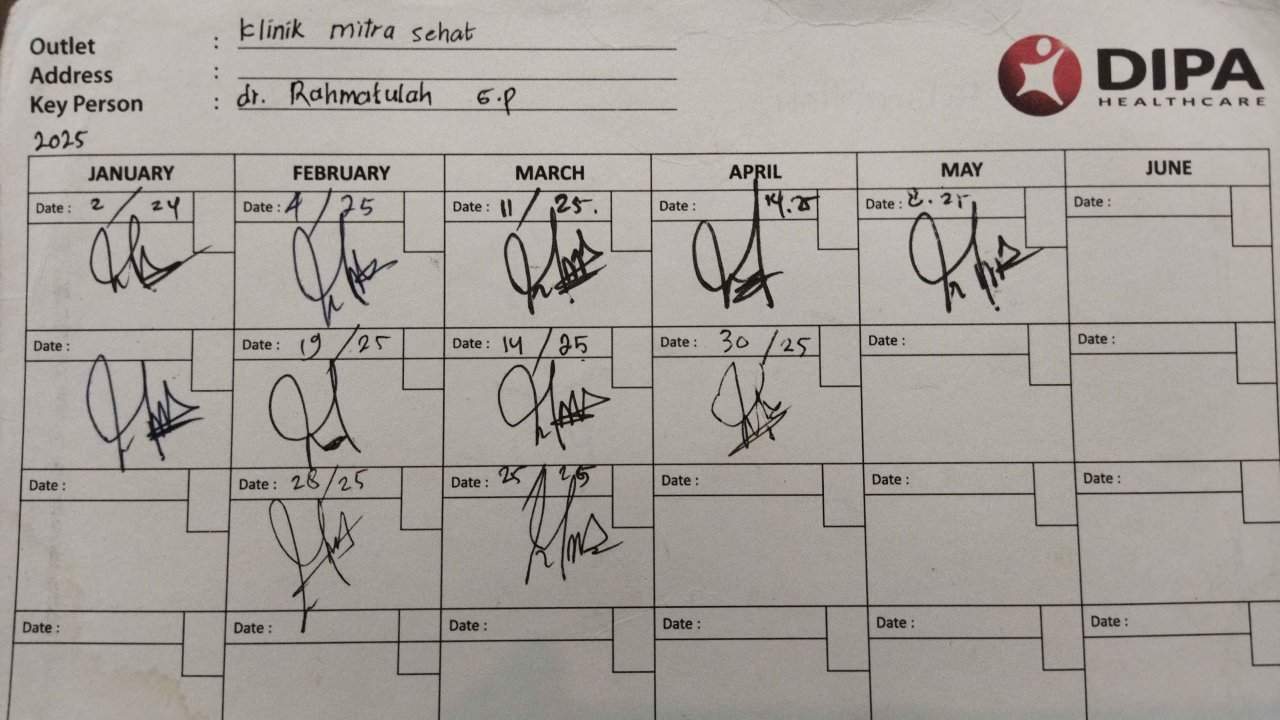 Outlet : Klinik mitra sehat
Address :
Key Person : dr. Rahmatulah S.P
DIPA
HEALTHCARE
2025
JANUARY FEBRUARY MARCH APRIL MAY JUNE
Date : 2 / 24 Date : 4 / 25 Date : 11 / 25. Date : 14.25 Date : 8.25 Date :
Date : Date : 19 / 25 Date : 14 / 25 Date : 30 / 25 Date : Date :
Date : Date : 28/25 Date : 25 / 25 Date : Date : Date :
Date : Date : Date : Date : Date : Date :